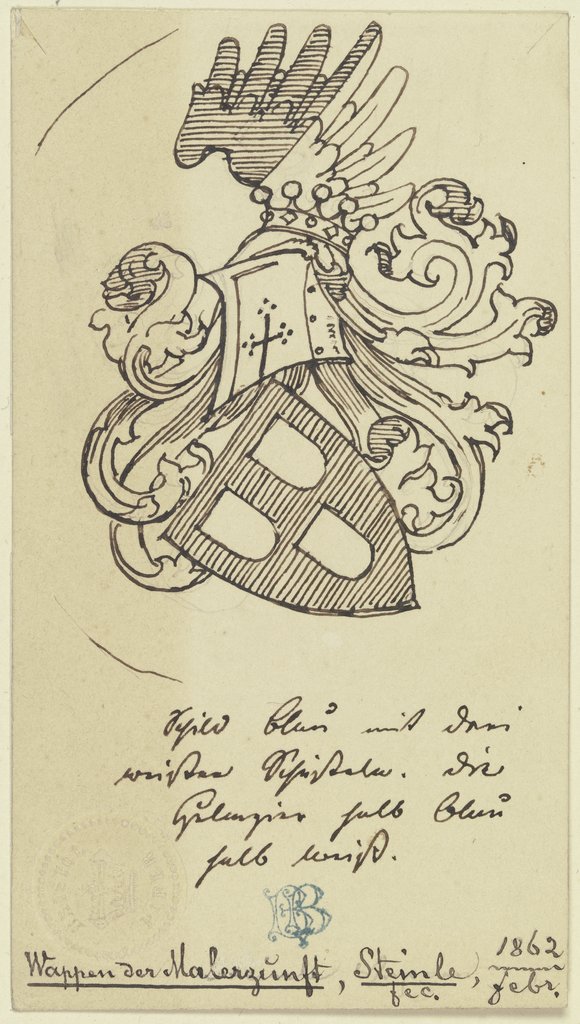 Schild blau mit drei
weißen Schilden. die
Helmzier halb blau
halb weiß.
Wappen der Malerzunft, Steinle fec., 1862 Febr.